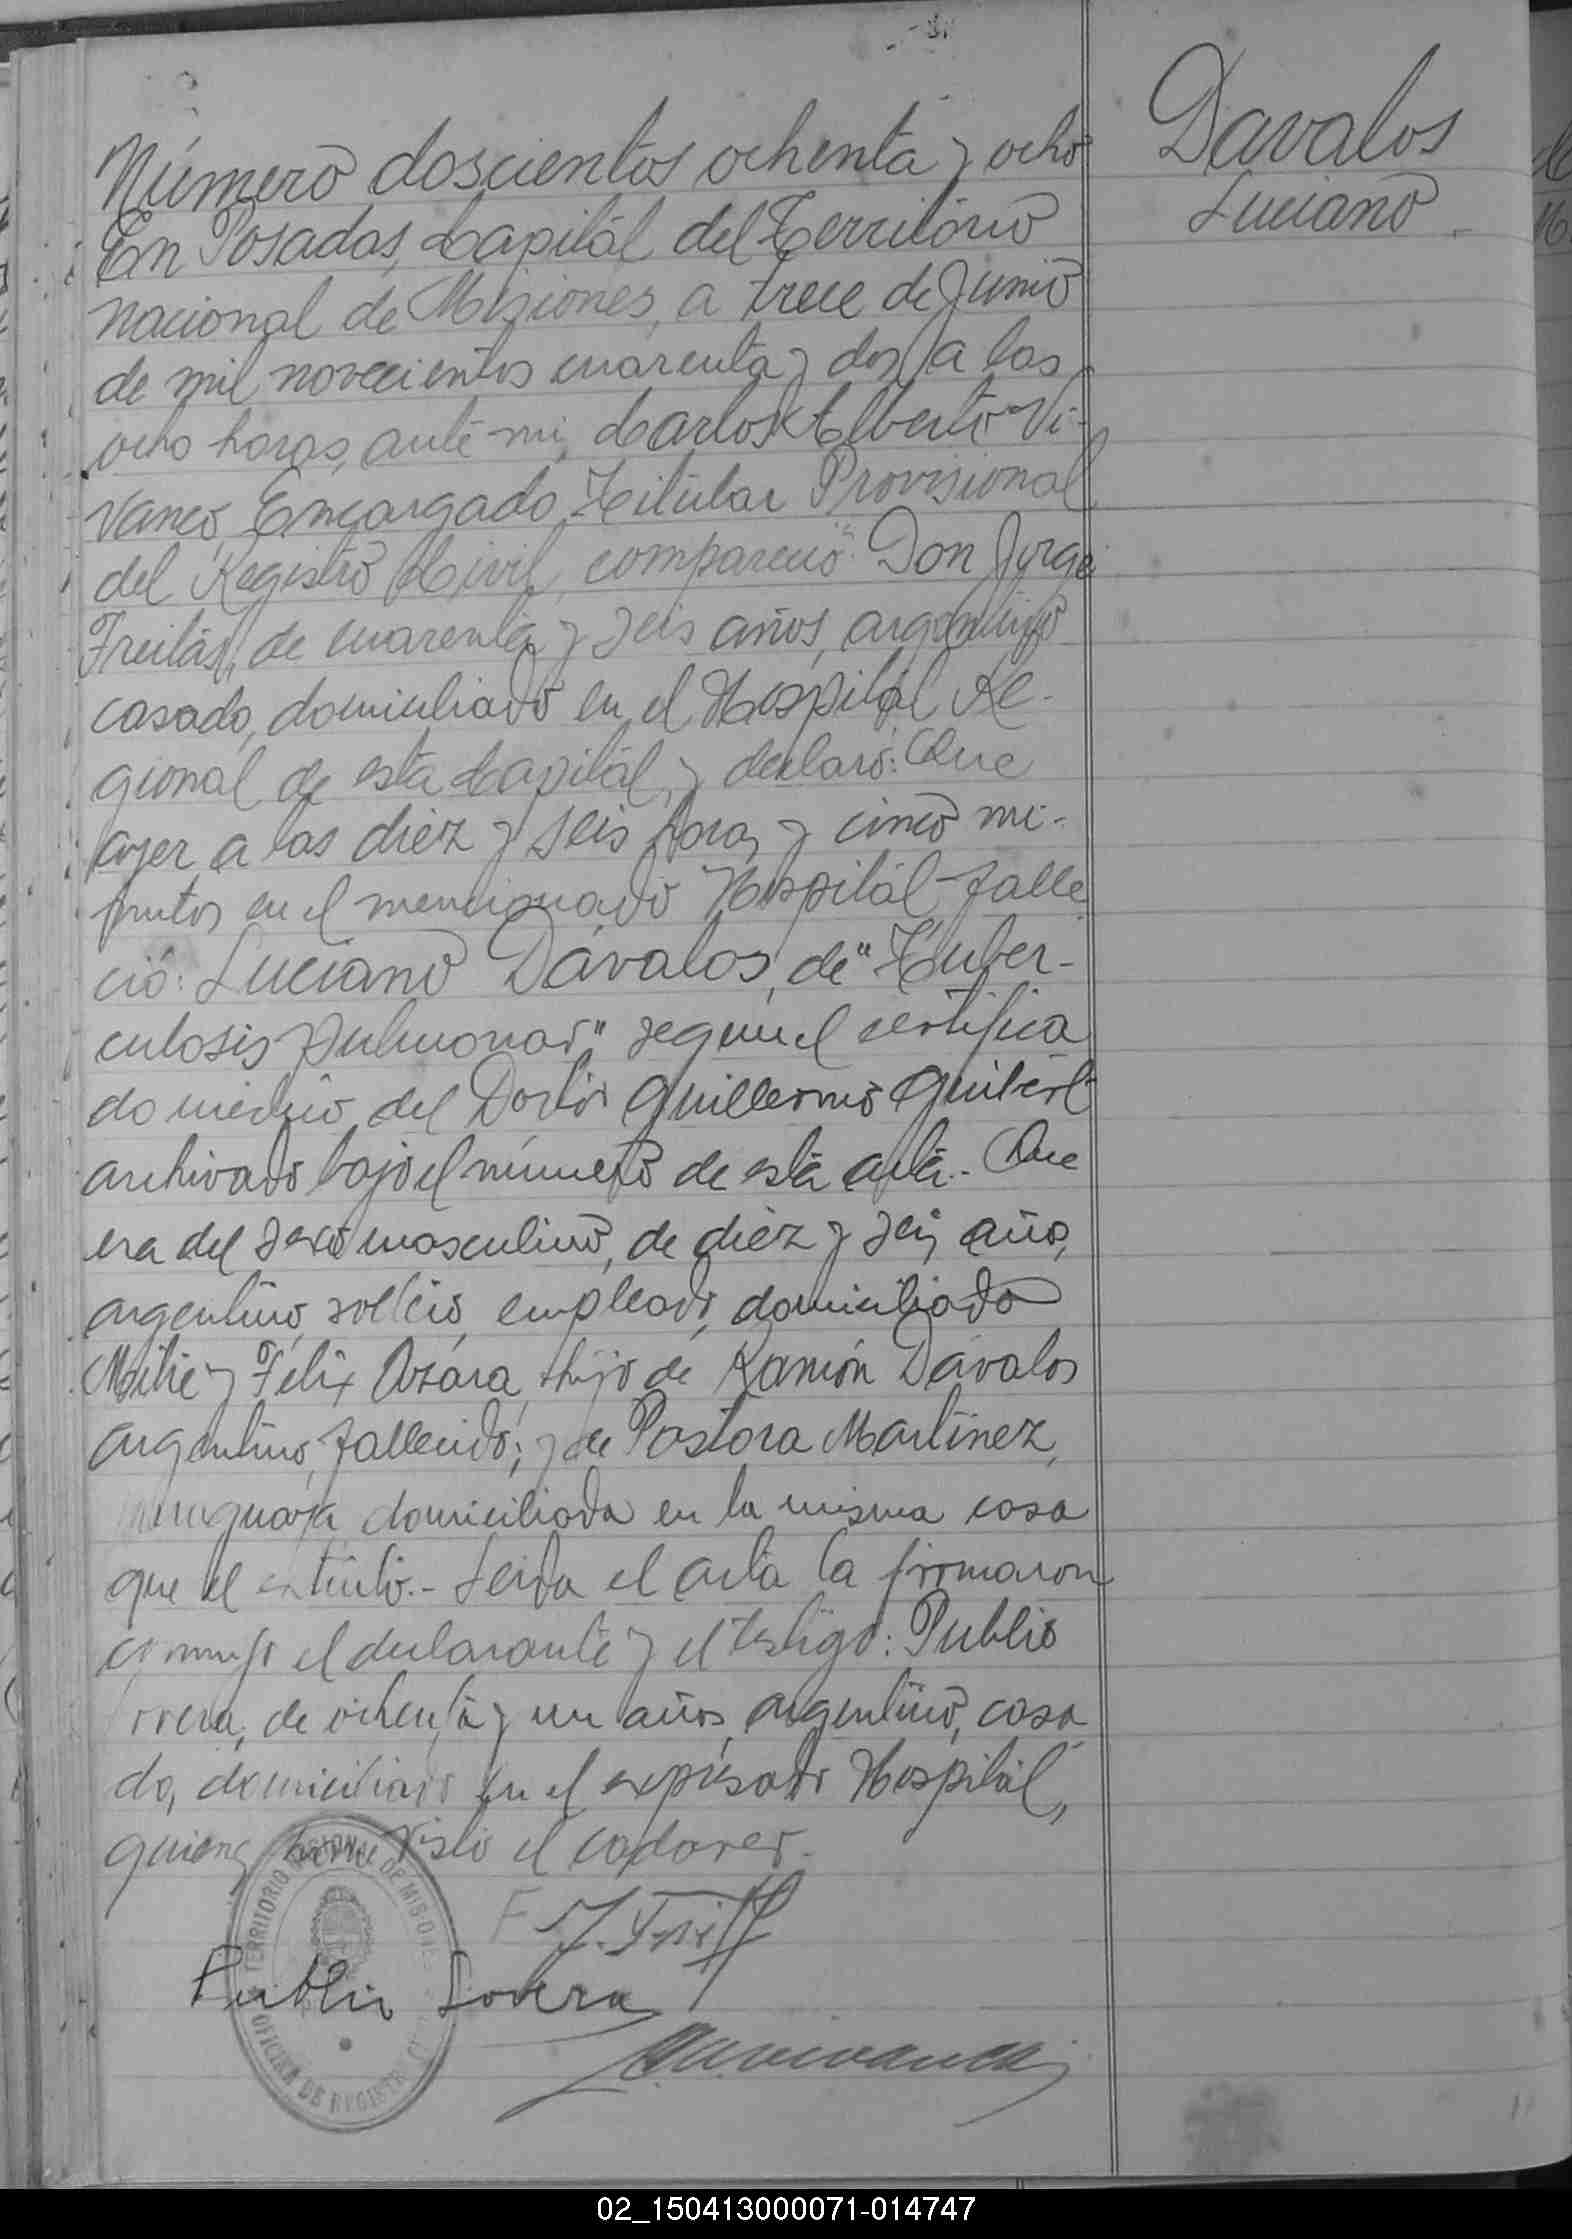 Número doscientos ochenta y ocho
En Posadas, Capitál del Territorio
nacional de Misiones, a trece de Junio
de mil novecientos cuarenta y dos, a las
ocho horas, ante mi, Carlos Alberto Vi-
vanco, Encargado Titular Provisional
del Registro Civil, compareció: Don Jorge
Freitas, de cuarenta y seis años, argentino
casado, domiciliado en el Hospitál Re-
gional de esta Capitál, y declaró: Que
ayer a las diez y seis horas y cinco mi-
nutos en el mencionado Hospitál falle
ció: Luciano Dávalos, de "Tuber-
culosis pulmonar" segun el certifica
do médico del Doctor Guillermo Guibert
archivado bajo el número de esta acta.- Que
era del sexo masculino, de diez y seis años,
argentino, soltero, empleado, domiciliado
Mitre y Félix Azára, hijo de Ramón Dávalos
argentino, fallecido; y de Pastora Martinez,
domiciliada en la misma casa
que el extinto.- Leida el acta la firmaron
conmigo el declarante y el testigo: Publio
de ochenta y un años, argentino, casa
do, domiciliado en el expresado Hospitál,
quienes han visto el cadaver.
Davalos
Luciano
J. Freitas
Publio Lovera
TERRITORIO NACIONAL DE MISIONES
OFICINA DE REGISTRO
02_150413000071-014747